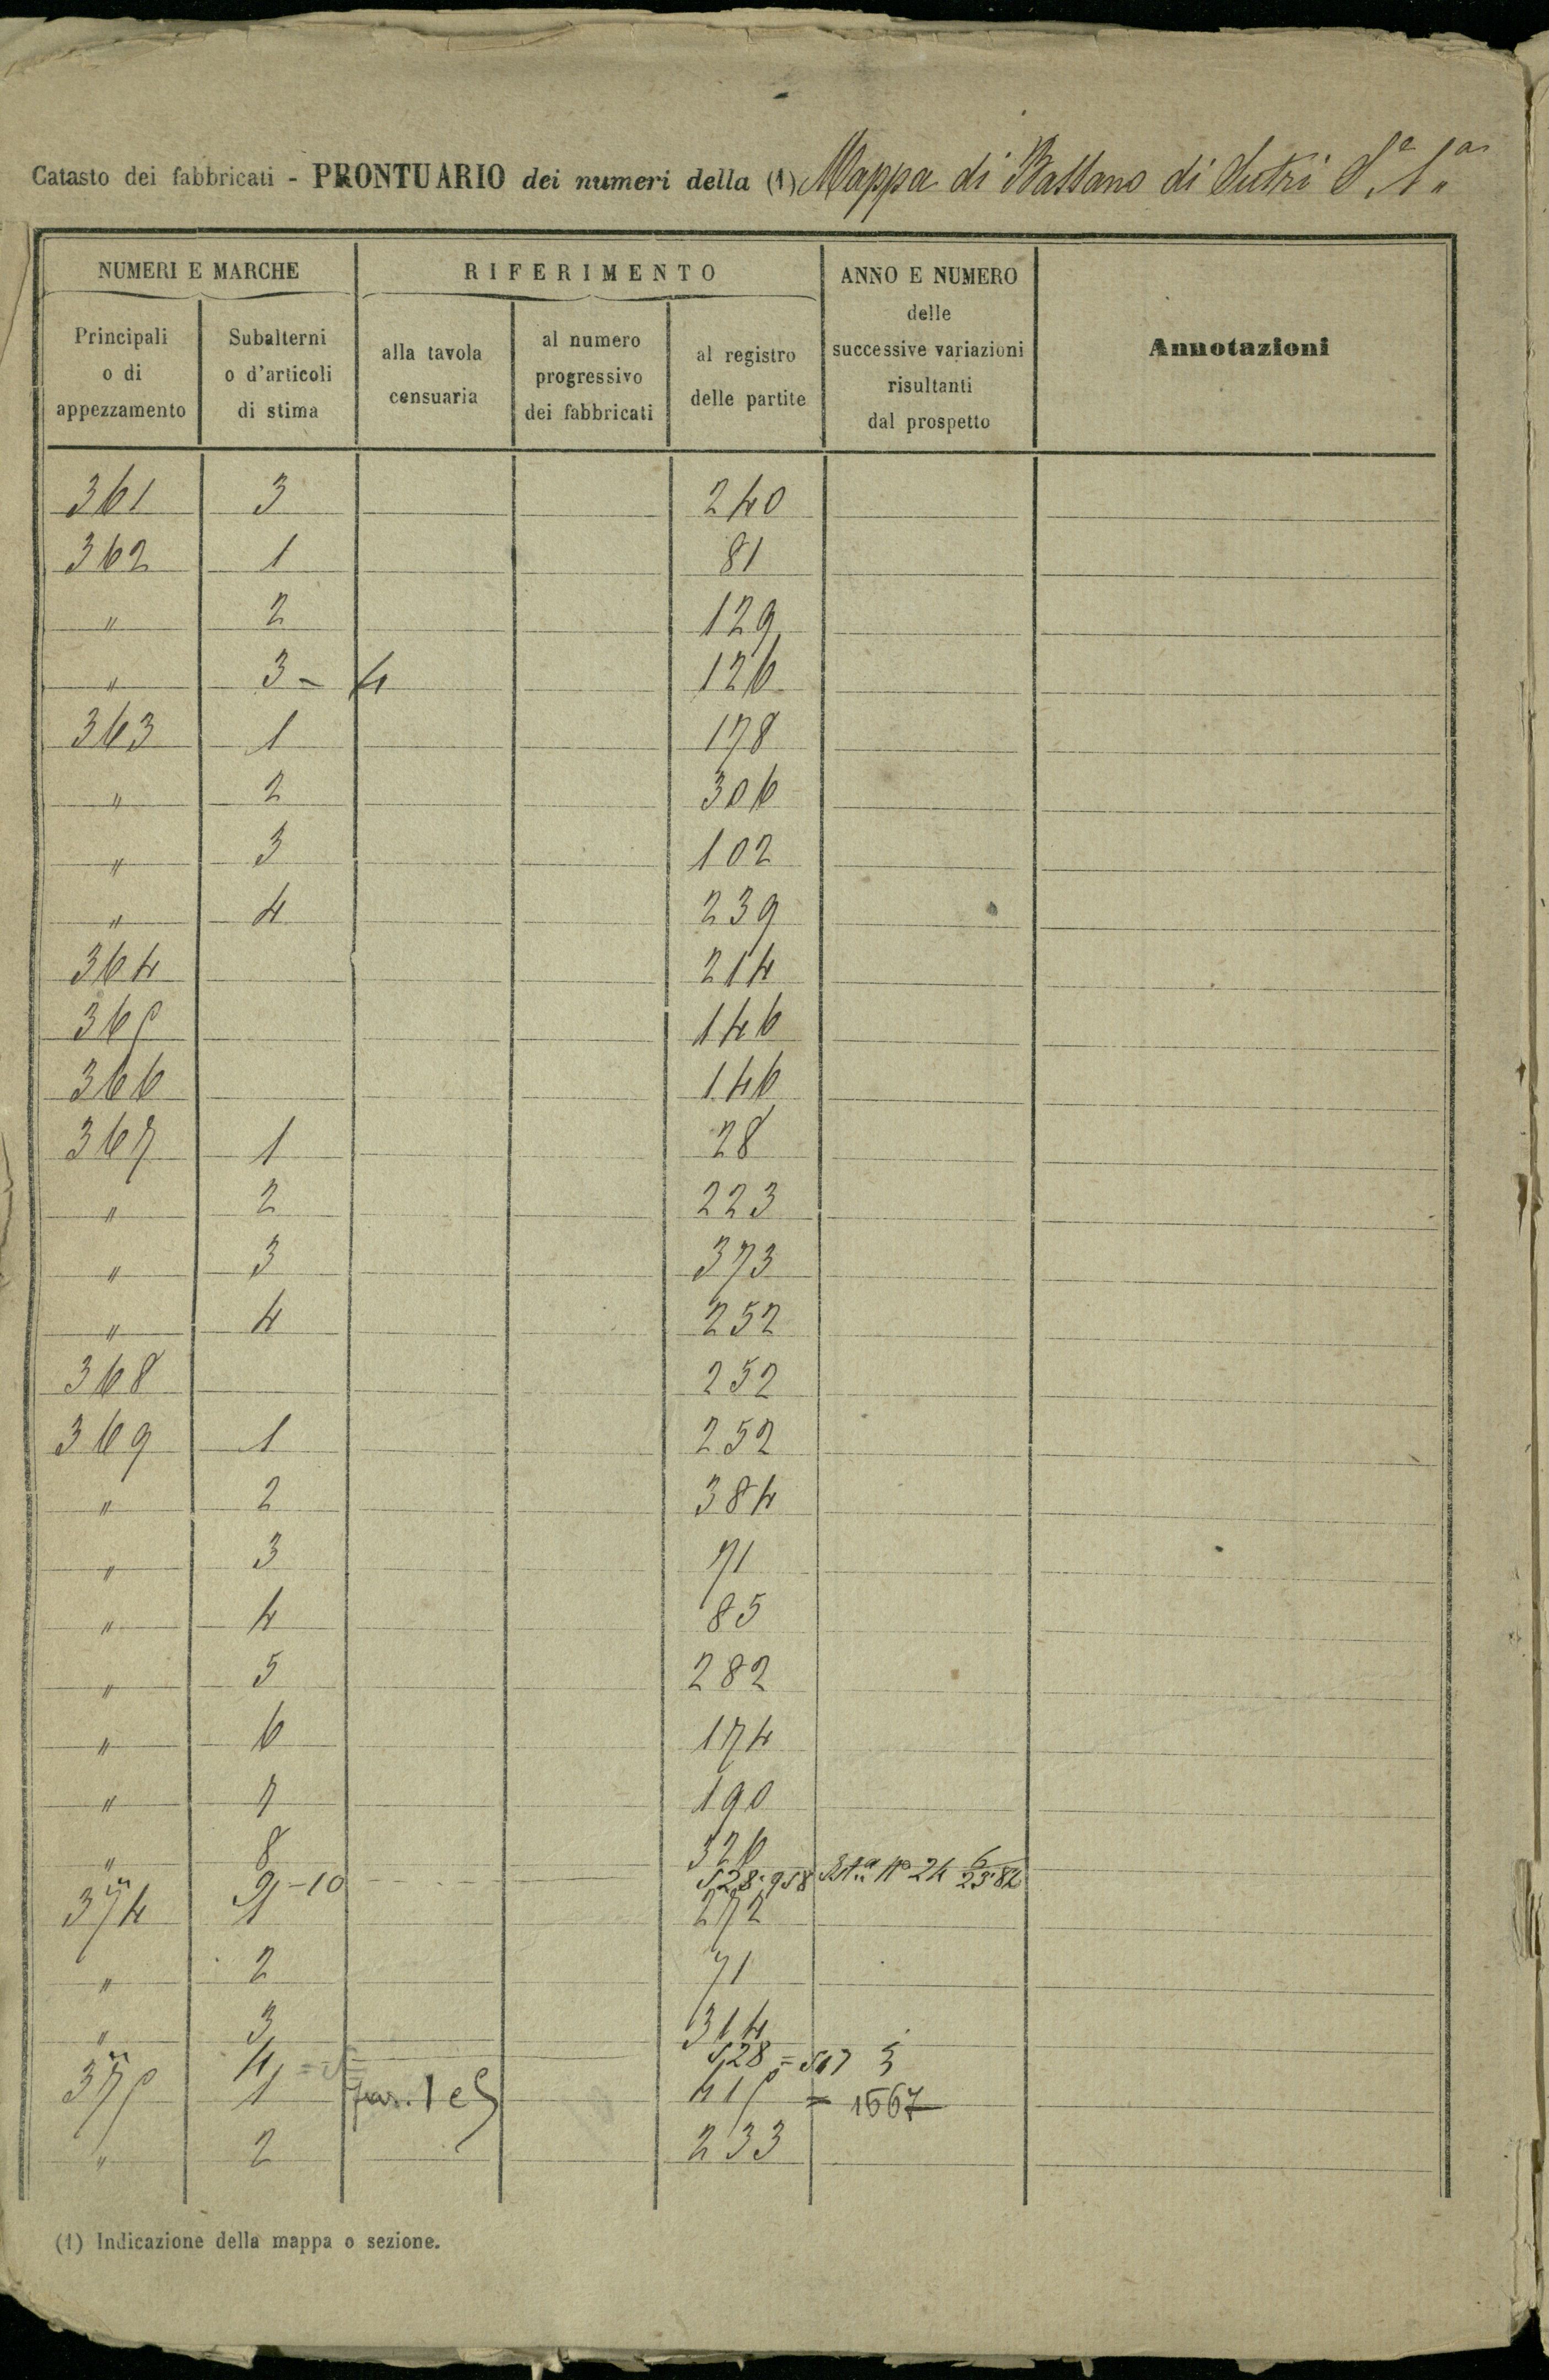 Catasto dei fabbricati - PRONTUARIO dei numeri della (1) Mappa di Bassano di Sutri S.a 1.a
NUMERI E MARCHE
RIFERIMENTO
ANNO E NUMERO delle successive variazioni risultanti dal prospetto
Annotazioni
Principali o di appezzamento
Subalterni o d'articoli di stima
alla tavola censuaria
al numero progressivo dei fabbricati
al registro delle partite
361 3 240
362 1 81
" 2 129
" 3 - 4 126
363 1 178
" 2 306
" 3 102
" 4 239
364 214
365 146
366 146
367 1 28
" 2 223
" 3 373
" 4 252
368 252
369 1 252
" 2 384
" 3 71
" 4 85
" 5 282
" 6 174
" 7 190
" 8 326
" 9-10 528-958 N° 24 6/23·82
374 1 272
" 2 71
" 3 314
" 4 528 = 507 5
375 1 415 = 1567
" 2 233
(1) Indicazione della mappa o sezione.